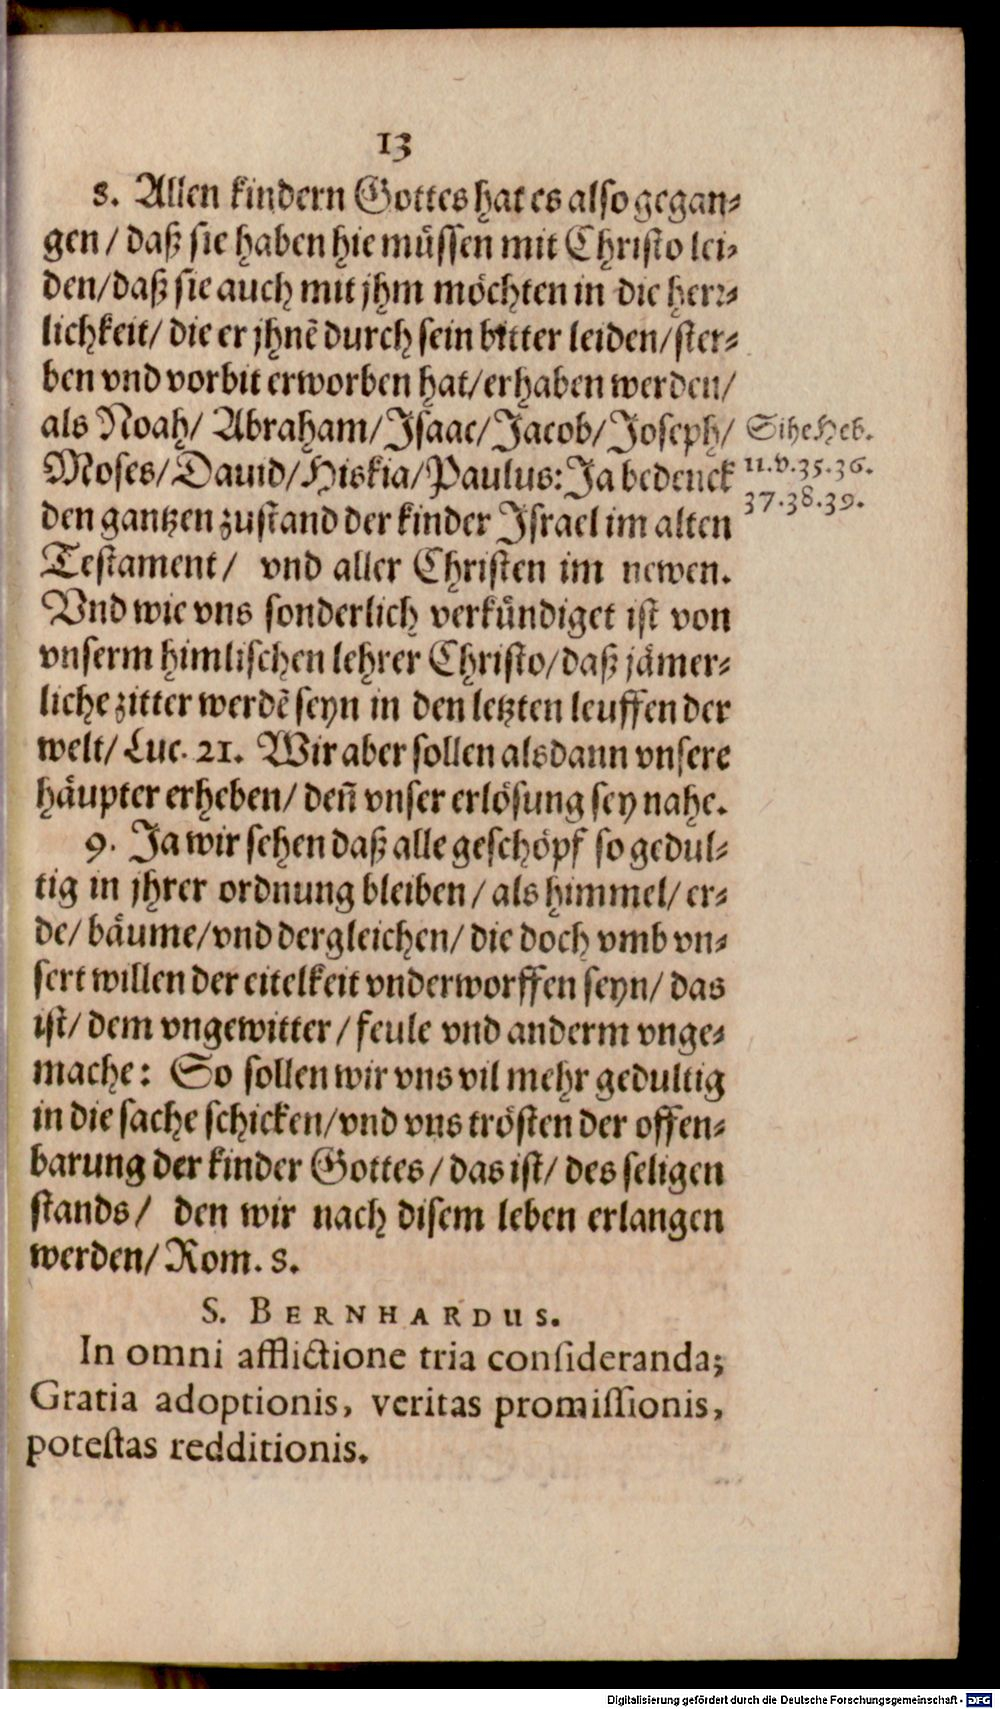 13
8. Allen kindern Gottes hat es also gegan-
gen / daß sie haben hie müssen mit Christo lei-
den/daß sie auch mit jhm möchten in die herr-
lichkeit/ die er jhnẽ durch sein bitter leiden/ster-
ben vnd vorbit erworben hat/erhaben werden/
als Noah/ Abraham/Isaac/Jacob/Joseph/
Moses/David/Hiskia/Paulus: Ja bedenck
den gantzen zustand der kinder Israel im alten
Testament/ vnd aller Christen im newen.
Vnd wie vns sonderlich verkündiget ist von
vnserm himlischen lehrer Christo/daß jämer-
liche zitter werdẽ seyn in den letzten leuffen der
welt/ Luc. 21. Wir aber sollen alsdann vnsere
häupter erheben/ deñ vnser erlösung sey nahe.
Sihe Heb.
11.v.35.36.
37.38.39.
9. Ja wir sehen daß alle geschöpf so gedul-
tig in jhrer ordnung bleiben / als himmel/ er-
de/ bäume/vnd dergleichen/ die doch vmb vn-
sert willen der eitelkeit vnderworffen seyn/ das
ist/ dem vngewitter / feule vnd anderm vnge-
mache: So sollen wir vns vil mehr gedultig
in die sache schicken/vnd vns trösten der offen-
barung der kinder Gottes / das ist/ des seligen
stands/ den wir nach disem leben erlangen
werden/ Rom. 8.
S. BERNHARDUS.
In omni afflictione tria consideranda;
Gratia adoptionis, veritas promissionis,
potestas redditionis.
Digitalisierung gefördert durch die Deutsche Forschungsgemeinschaft - DFG